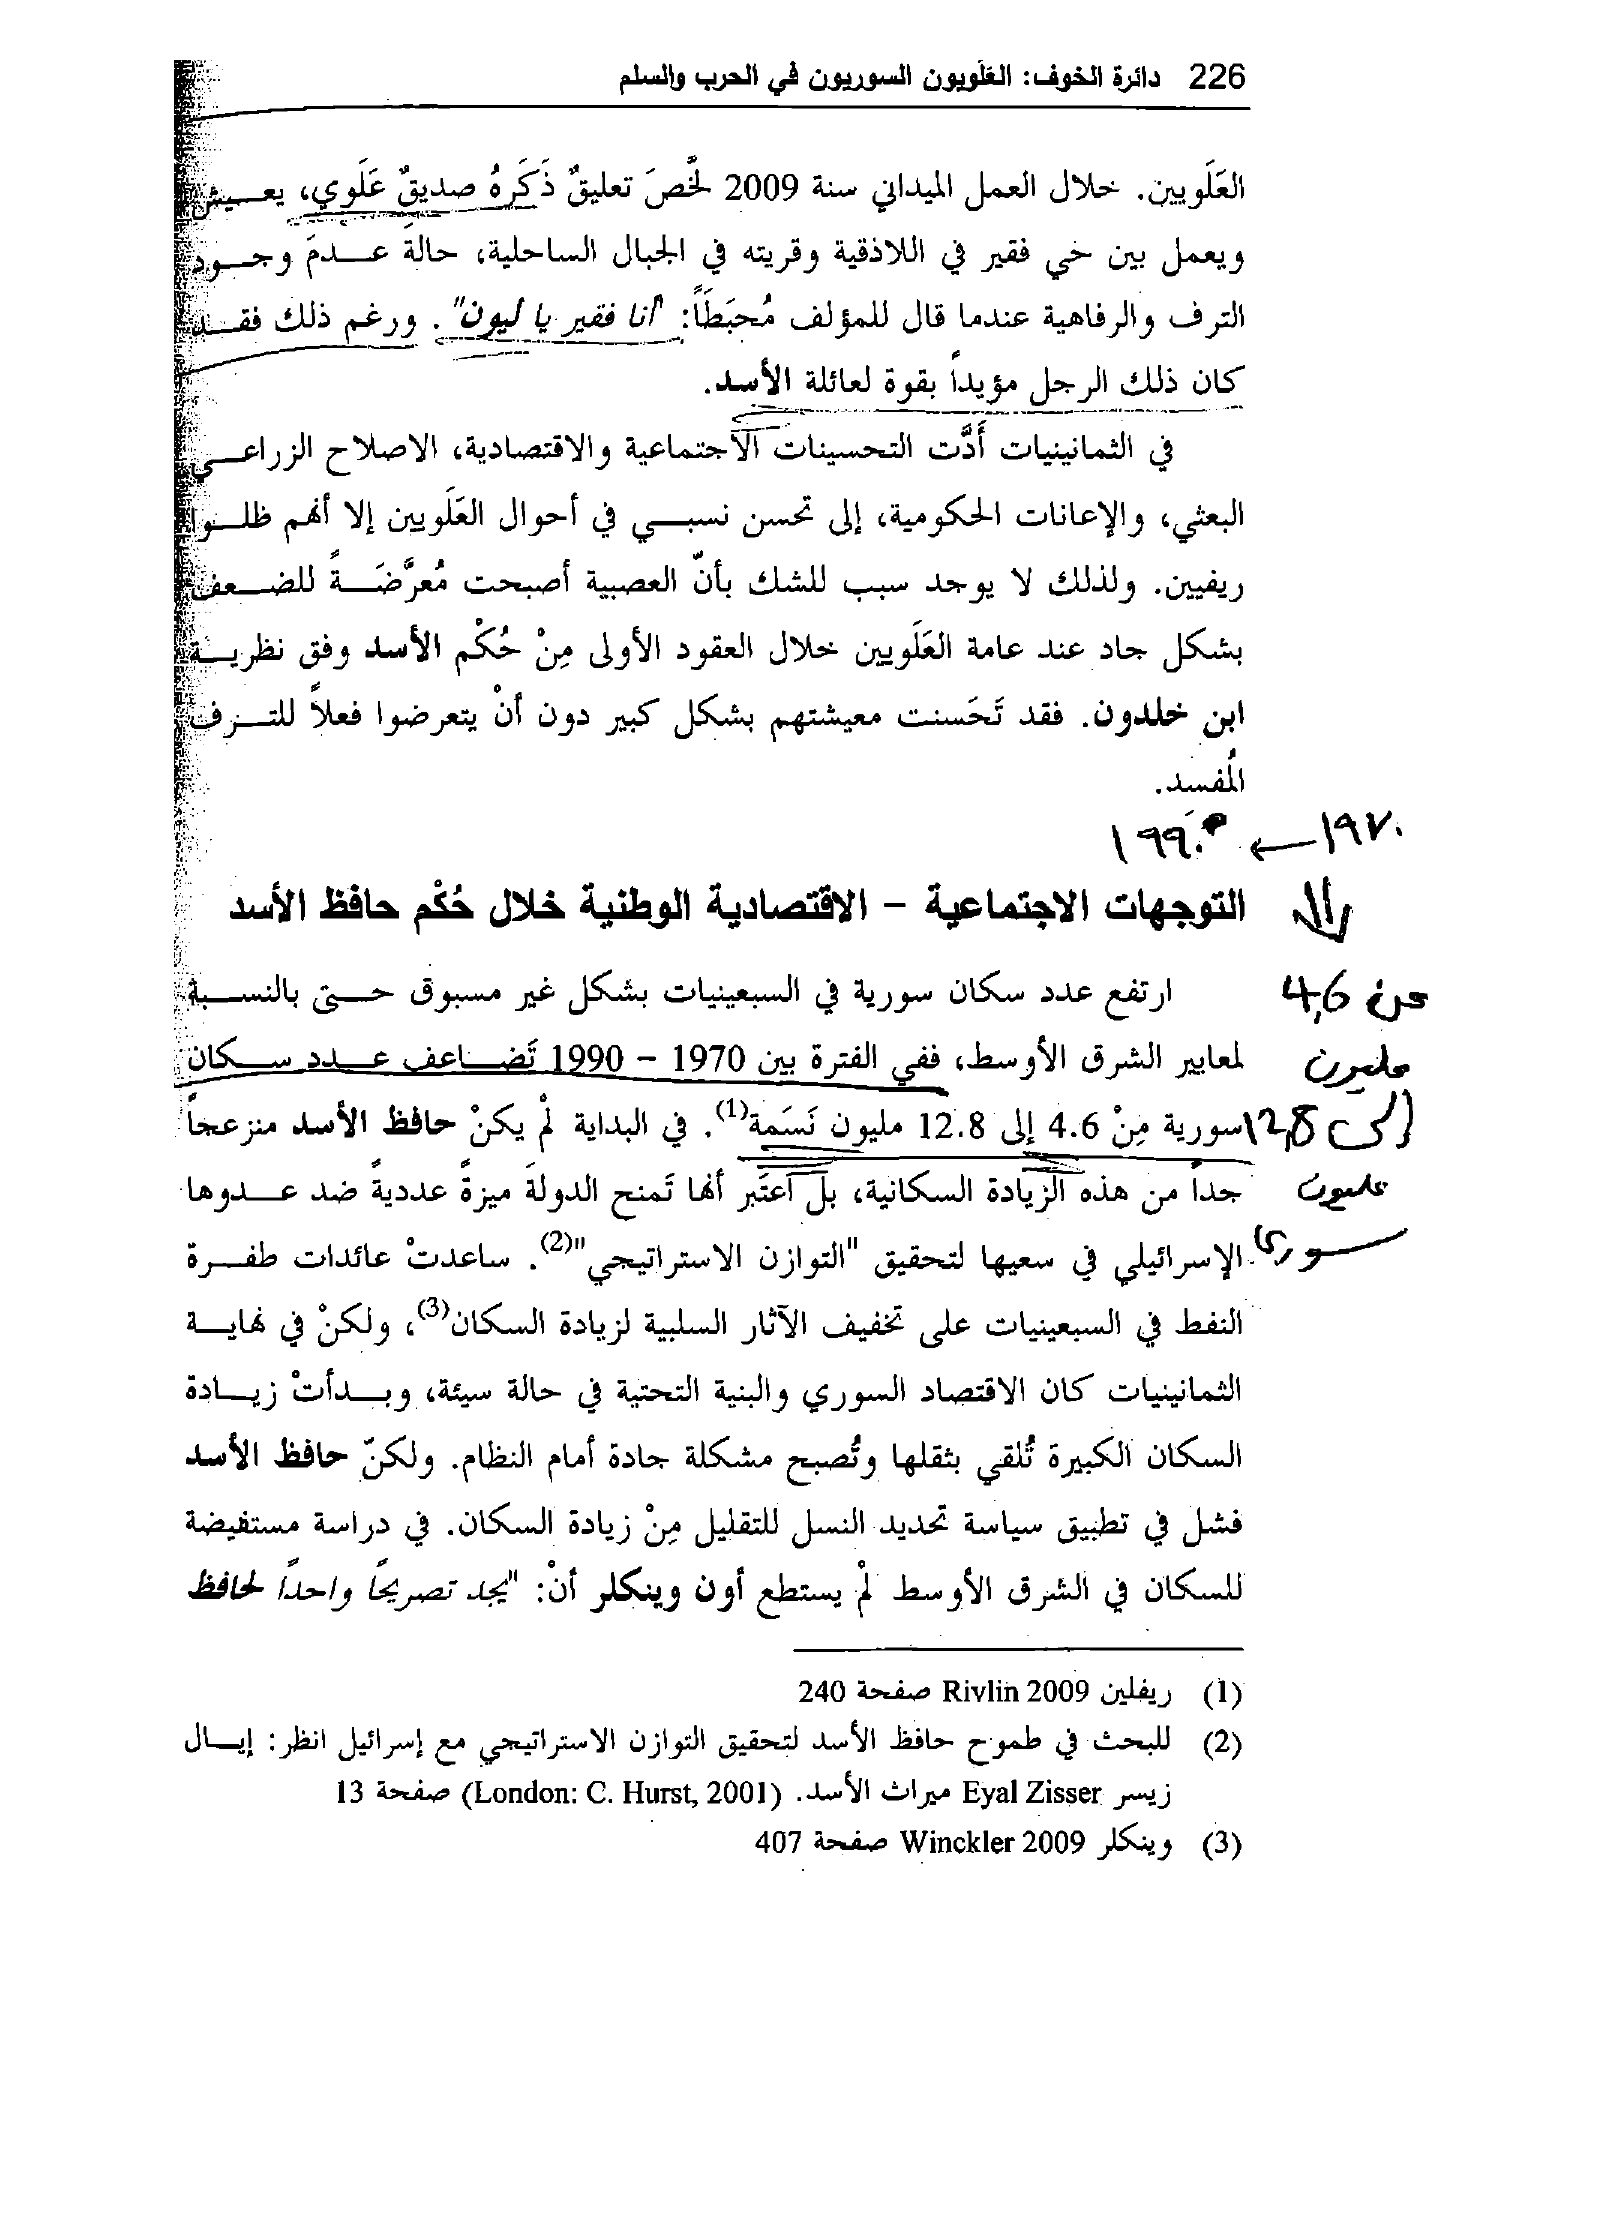 226 دائرة الخوف: العَلَويون السوريون في الحرب والسلم
العَلَويين. خلال العمل الميداني سنة 2009 لخَّصَ تعليقٌ ذَكَرهُ صديقٌ عَلَوي، يعـــيش
ويعمل بين حي فقير في اللاذقية وقريته في الجبال الساحلية، حالةِ عـــدمَ وجـــود
الترف والرفاهية عندما قال للمؤلف مُحبَطَاً: "أنا فقير يا ليون". ورغم ذلك فقـــد
كان ذلك الرجل مؤيداً بقوة لعائلة الأسد.
في الثمانينيات أدَّت التحسينات الاجتماعية والاقتصادية، الاصلاح الزراعـــي
البعثي، والإعانات الحكومية، إلى تحسن نسبـــي في أحوال العَلَويين إلا أنهم ظلـــوا
ريفيين. ولذلك لا يوجد سبب للشك بأنّ العصبية أصبحت مُعرَّضَـــةً للضـــعف
بشكل جاد عند عامة العَلَويين خلال العقود الأولى مِنْ حُكْم الأسد وفق نظريـــة
ابن خلدون. فقد تَحَسنت معيشتهم بشكل كبير دون أنْ يتعرضوا فعلاً للتـــرف
المُفسد.
١٩٧٠ ← ١٩٩٠
التوجهات الاجتماعية – الاقتصادية الوطنية خلال حُكْم حافظ الأسد
ارتفع عدد سكان سورية في السبعينيات بشكل غير مسبوق حـــتى بالنســـبة
من 4,6
لمعايير الشرق الأوسط، ففي الفترة بين 1970 – 1990 تَضـــاعف عـــدد ســـكان
مليون
سورية مِنْ 4.6 إلى 12.8 مليون نَسَمة(1). في البداية لمْ يكنْ حافظ الأسد منزعجاً
إلى 12,8
جداً من هذه الزيادة السكانية، بل اعتَبر أنها تَمنح الدولةَ ميزةً عدديةً ضد عـــدوها
مليون
الإسرائيلي في سعيها لتحقيق "التوازن الاستراتيجي"(2). ساعدتْ عائدات طفـــرة
سوري
النفط في السبعينيات على تخفيف الآثار السلبية لزيادة السكان(3)، ولكنْ في نهايـــة
الثمانينيات كان الاقتصاد السوري والبنية التحتية في حالة سيئة، وبـــدأتْ زيـــادة
السكان الكبيرة تُلقي بثقلها وتُصبح مشكلة جادة أمام النظام. ولكنّ حافظ الأسد
فشل في تطبيق سياسة تحديد النسل للتقليل مِنْ زيادة السكان. في دراسة مستفيضة
للسكان في الشرق الأوسط لمْ يستطع أون وينكلر أنْ: "يجد تصريحاً واحداً لحافظ
(1) ريفلين Rivlin 2009 صفحة 240
(2) للبحث في طموح حافظ الأسد لتحقيق التوازن الاستراتيجي مع إسرائيل انظر: إيـــال
زيسر Eyal Zisser ميراث الأسد. (London: C. Hurst, 2001) صفحة 13
(3) وينكلر Winckler 2009 صفحة 407